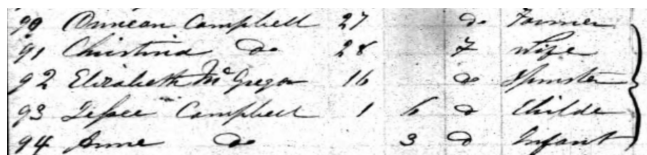 90 Duncan Campbell 27 do Farmer
91 Christina do 28 F Wife
92 Elizabeth McGregor 16 do Spinster
93 Campbell 1 6 d Childe
94 Anne do 3 d Infant